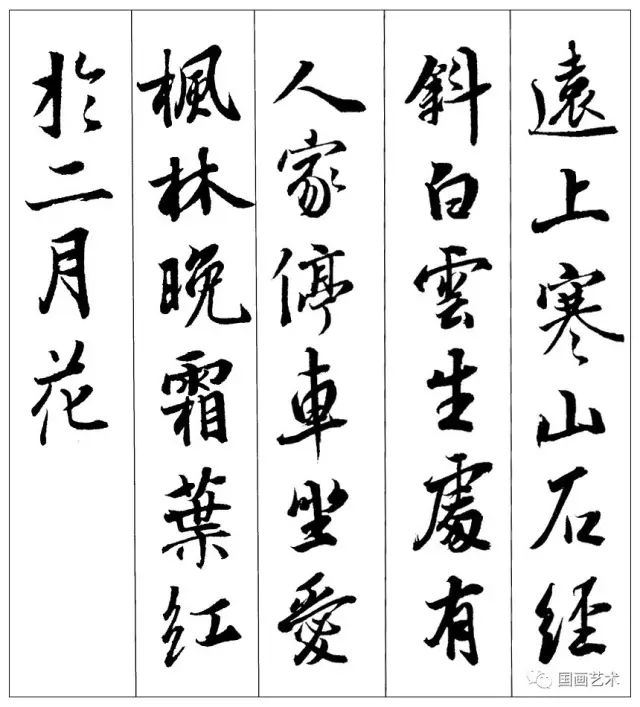 遠上寒山石經
斜白雲生處有
人家停車坐愛
楓林晚霜葉紅
於二月花
国画艺术